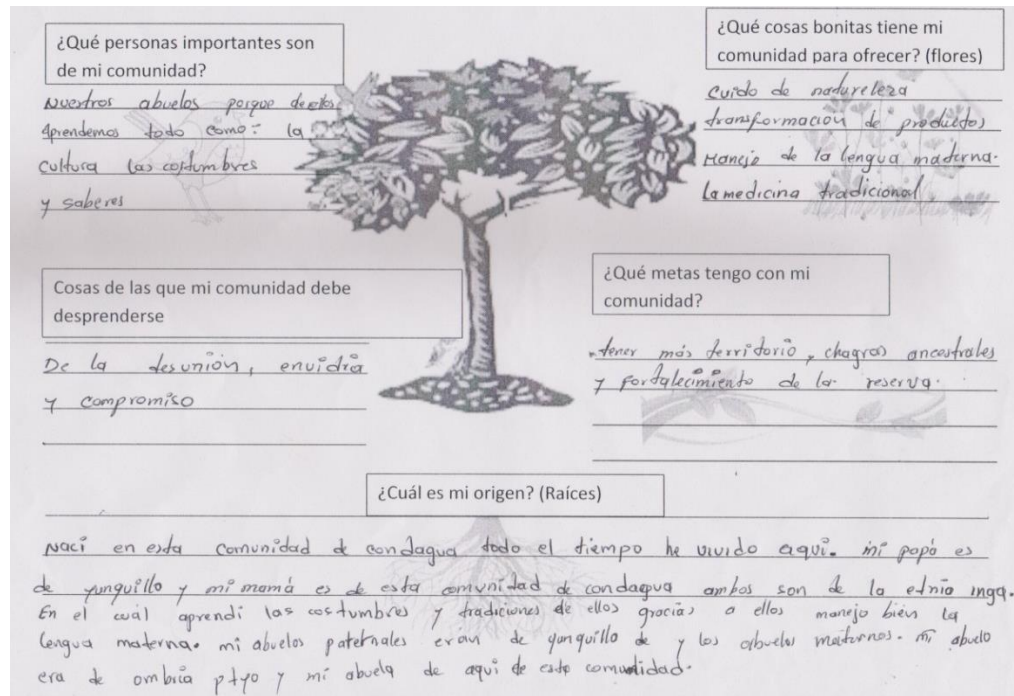 ¿Qué personas importantes son
de mi comunidad?
Nuestros abuelos porque de ellos
Aprendemos todo como: la
cultura las costumbres
y saberes
¿Qué cosas bonitas tiene mi
comunidad para ofrecer? (flores)
cuido de natureleza
transformacion de productos
Manejo de la lengua materna.
La medicina tradicional,
Cosas de las que mi comunidad debe
desprenderse
De la desunión, envidia
y compromiso
¿Qué metas tengo con mi
comunidad?
tener más territorio, chagras ancestrales
y fortalecimiento de la reserva.
¿Cuál es mi origen? (Raíces)
Naci en esta comunidad de condagua todo el tiempo he vivido aqui. mi papá es
de yunguillo y mi mamá es de esta comunidad de condagua ambos son de la etnia inga.
En el cuál aprendi las costumbres y tradiciones de ellos gracias a ellos manejo bien la
lengua materna. mi abuelos paternales eran de yunguillo de y los abuelos maternos. mi abuelo
era de ombria ptyo y mi abuela de aqui de esta comunidad.